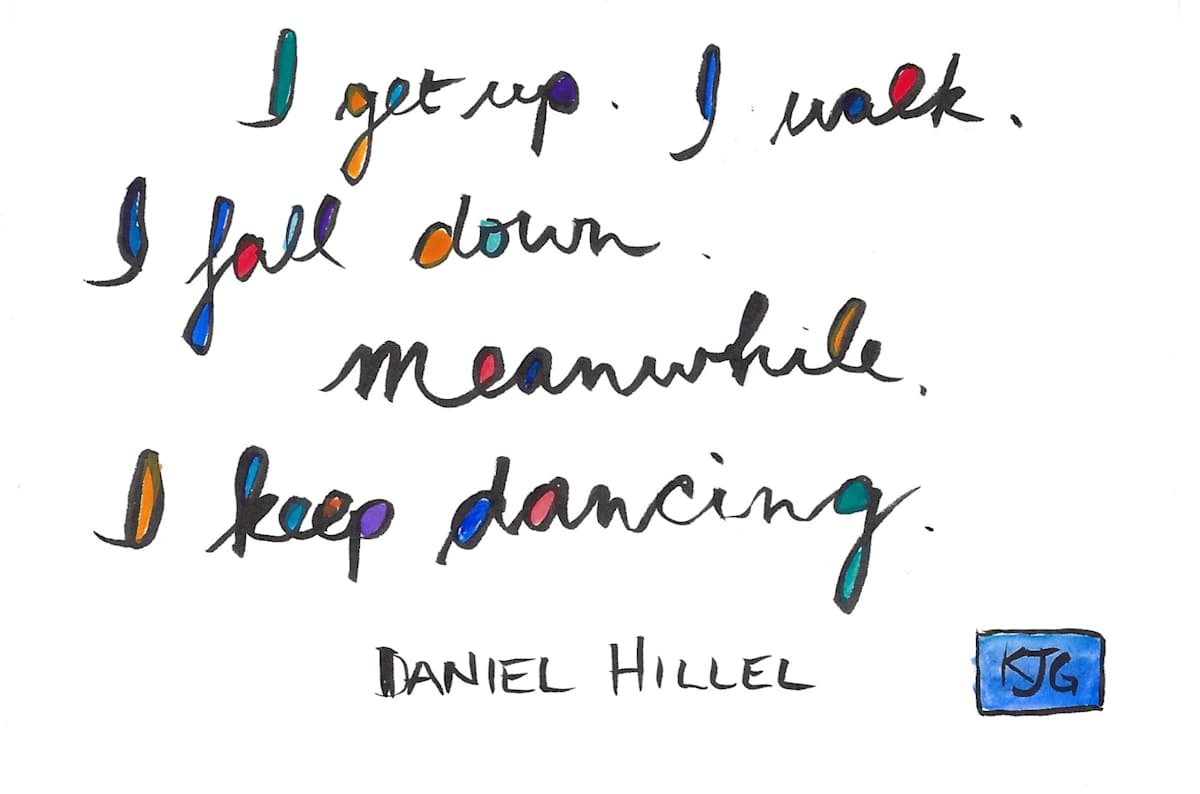 I get up. I walk.
I fall down.
meanwhile.
I keep dancing.
DANIEL HILLEL
KJG